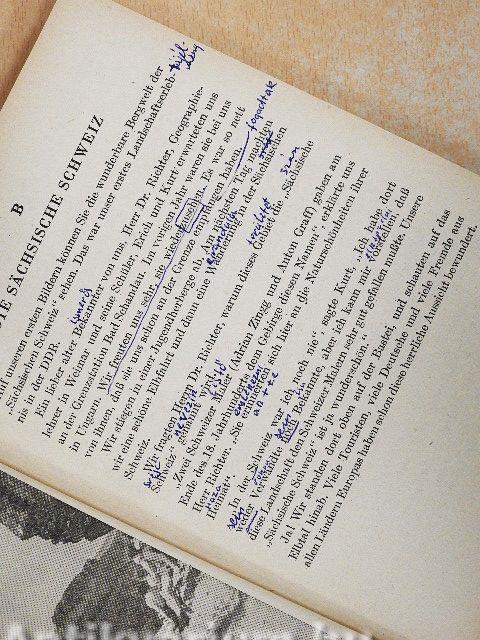 B
DIE SÄCHSISCHE SCHWEIZ
Auf unseren ersten Bildern können Sie die wunderbare Bergwelt der
„Sächsischen Schweiz“ sehen. Das war unser erstes Landschaftserleb-
nis in der DDR.
Ein lieber alter Bekannter von uns, Herr Dr. Richter, Geographie-
lehrer in Weimar und seine Schüler, Erich und Kurt erwarteten uns
an der Grenzstation Bad Schandau. Im vorigen Jahr waren sie bei uns
in Ungarn. Wir freuten uns sehr, sie wiederzusehen. Es war so nett
von ihnen, daß sie uns schon an der Grenze empfangen haben.
Wir stiegen in einer Jugendherberge ab. Am nächsten Tag machten
wir eine schöne Elbfahrt und dann eine Wanderung in der Sächsischen
Schweiz.
Wir fragten Herrn Dr. Richter, warum dieses Gebiet die „Sächsische
Schweiz“ genannt wird.
„Zwei Schweizer Maler (Adrian Zingg und Anton Graff) gaben am
Ende des 18. Jahrhunderts dem Gebirge diesen Namen“, erklärte uns
Herr Richter. „Sie erinnerten sich hier an die Naturschönheiten ihrer
Heimat“.
„In der Schweiz war ich noch nie“, sagte Kurt, „Ich habe dort
weder Verwandte noch Bekannte, aber ich kann mir vorstellen, daß
diese Landschaft den Schweizer Malern sehr gut gefallen mußte. Unsere
„Sächsische Schweiz“ ist ja wunderschön“.
Ja! Wir standen dort oben auf der Bastei, und schauten auf das
Elbtal hinab. Viele Touristen, viele Deutsche und viele Freunde aus
allen Ländern Europas haben schon diese herrliche Aussicht bewundert.